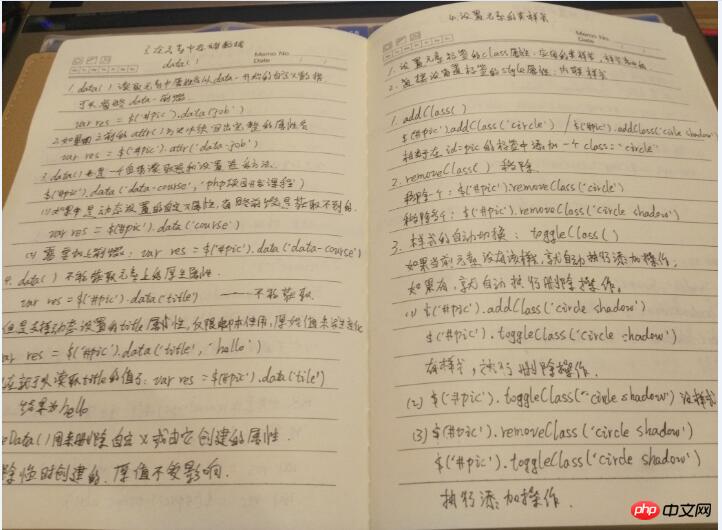 3. 在元素中存储数据
data()
Memo No.
Date
1. data() 读取元素中属性名以data-开始的自定义数据
可以省略data-前缀
var res = $('#pic').data('job')
2. 如果用之前的attr()方法必须写出完整的属性名
var res = $('#pic').attr('data-job')
3. data()也是一个集读取与设置的方法.
$('#pic').data('data-course', 'php
var res = $('#pic').data('course')
(2) 需要加上前缀: var res = $('#pic').data('data-course')
4. data() 不能获取元素上的原生属性.
var res = $('#pic').data('title') ——不能获取.
但是支持动态设置的title属性, 仅限脚本使用, 原始值未发生变化
var res = $('#pic').data('title', 'hello')
现在就可以读取title的值了: var res = $('#pic').data('title')
结果为hello
eData()用来删除自定义或由它创建的属性.
除临时创建的, 原值不受影响.
4. 设置元素的类样式
Memo No.
Date
1. 设置元素标签的class属性:
2. 直接设置标签的style属性: 内联样式
1. addClass()
$('#pic').addClass('circle') / $('#pic').addClass('circle shadow')
相当于在id=pic的标签中添加一个class="circle"
2. removeClass() 移除
移除一个: $('#pic').removeClass('circle')
移除多个: $('#pic').removeClass('circle shadow')
3. 样式的自动切换: toggleClass()
如果当前元素没有该样式, 就自动执行添加操作;
如果有, 就自动执行删除操作.
(1) $('#pic').addClass('circle shadow')
$('#pic').toggleClass('circle shadow')
有样式, 执行删除操作.
(2) $('#pic').toggleClass('circle shadow') 没样式
(3) $('#pic').removeClass('circle shadow')
$('#pic').toggleClass('circle shadow')
执行添加操作.
php 中文网